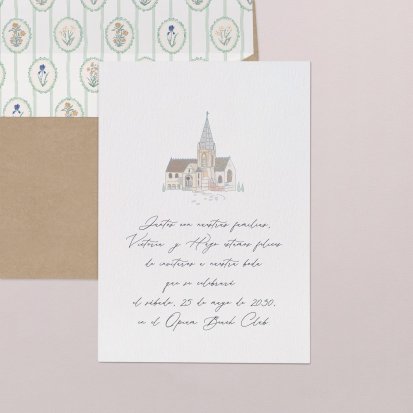 Juntos con nuestras familias,
Victoria y Hugo estamos felices
de invitaros a nuestra boda
que se celebrará
el sábado, 25 de mayo de 2030,
en el Opium Beach Club.